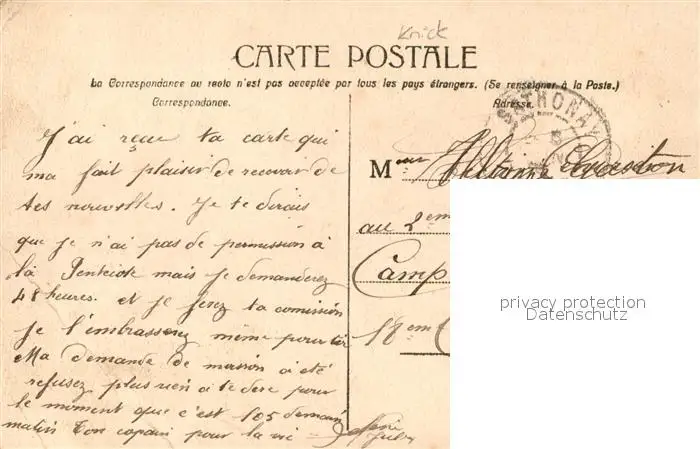 Knick
CARTE POSTALE
La Correspondance au recto n'est pas acceptée par tous les pays étrangers. (Se renseigner à la Poste.)
Correspondance.
Adresse.
SATHONAY
J'ai reçue ta carte qui
ma fait plaisir de recevoir de
tes nouvelles. Je te dirais
que je n'ai pas de permission à
la Pentecote mais je demanderez
48 heures. et je ferez ta comission
je l'embrasserez même pour toi
Ma demande de a été
refusez plus rien a te dire pour
le moment que c'est 105 demain
matin Ton copain pour la vie
M
au 2em
Camp
18em
privacy protection
Datenschutz